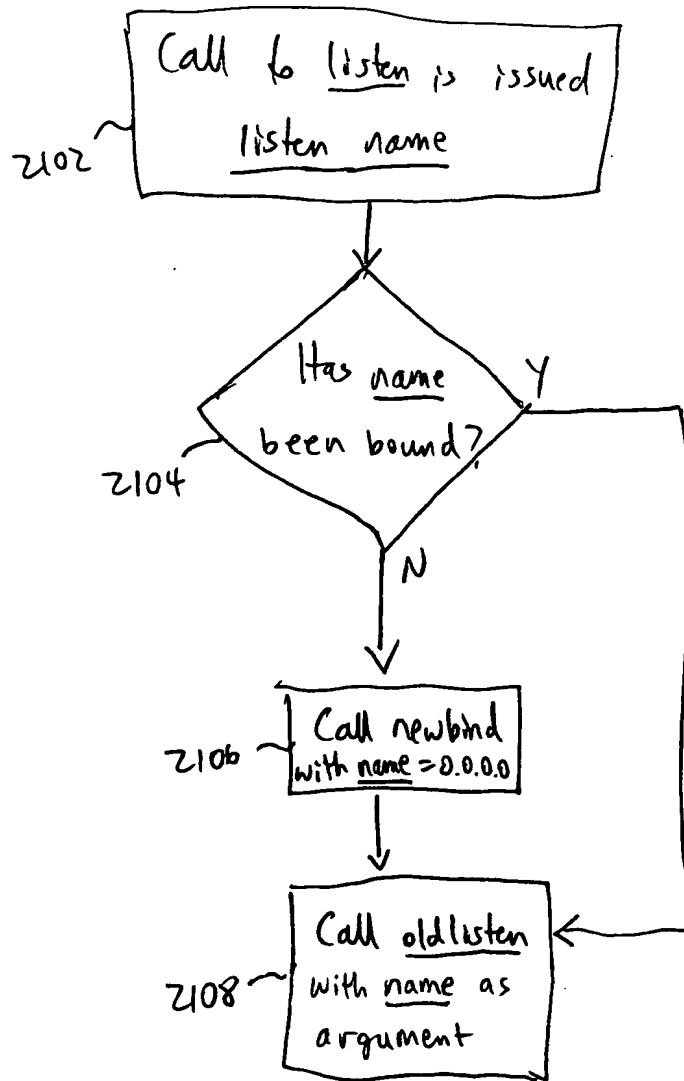 Call to listen is issued
listen name
2102
Has name
been bound?
Y
2104
N
Call newbind
with name = 0.0.0.0
2106
Call oldlisten
with name as
argument
2108